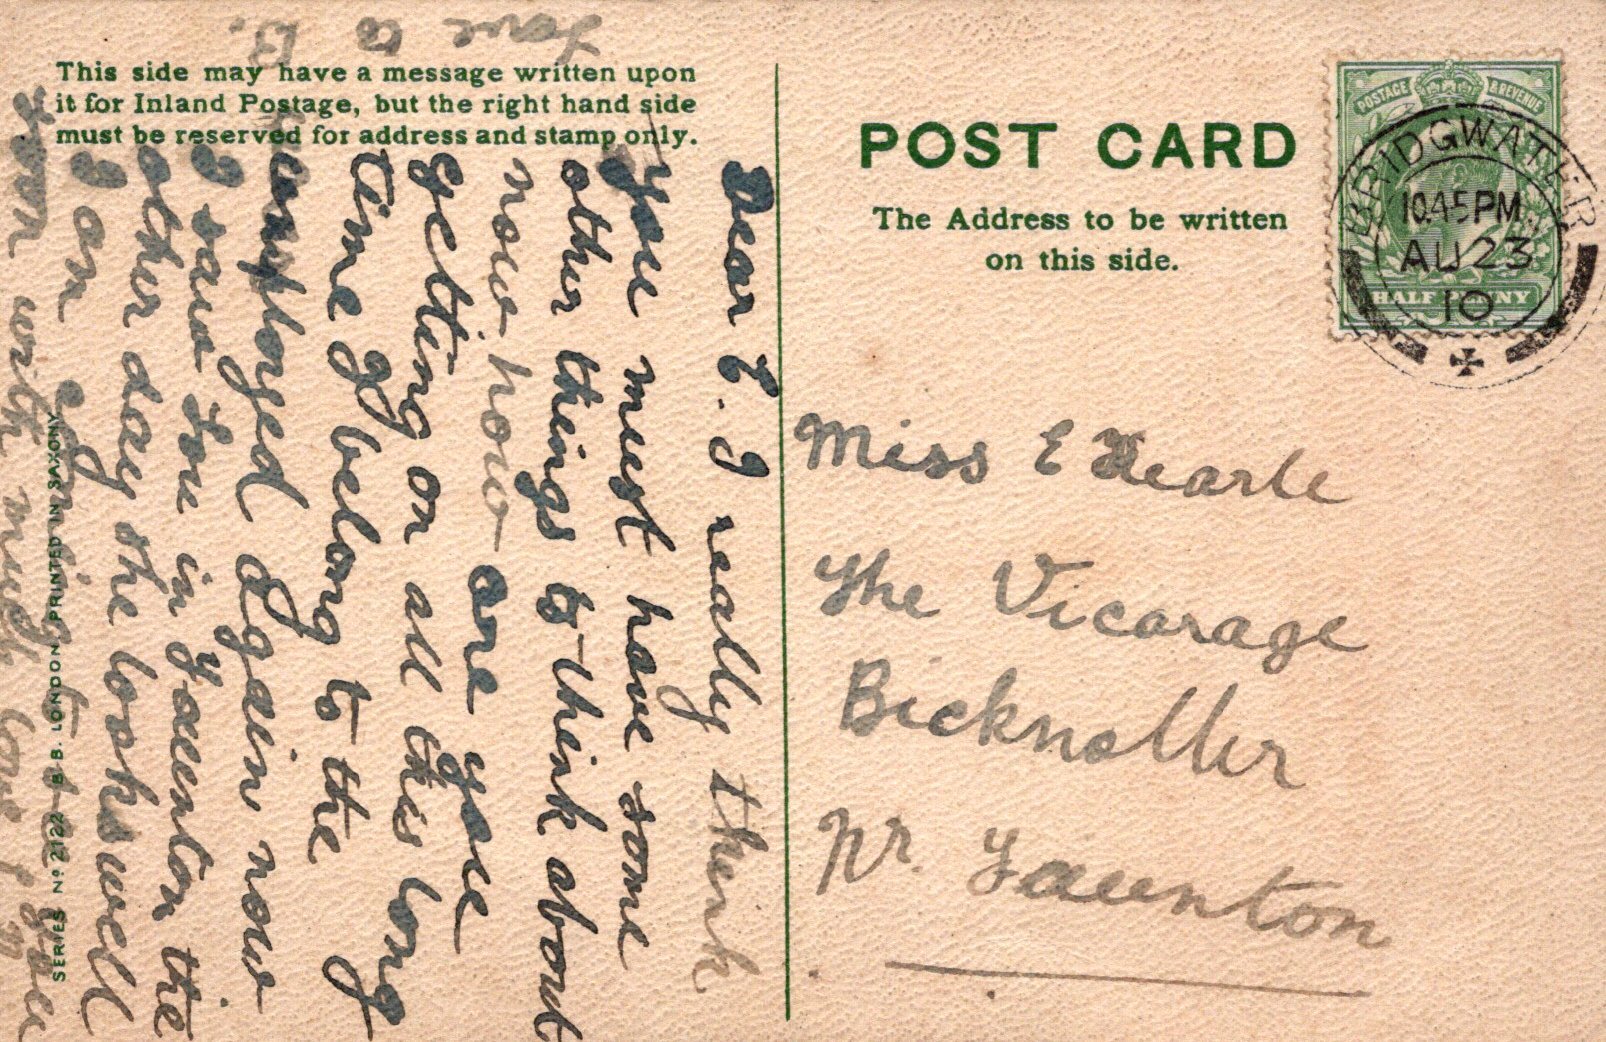 This side may have a message written upon
it for Inland Postage, but the right hand side
must be reserved for address and stamp only.
POST CARD
The Address to be written
on this side.
POSTAGE & REVENUE
HALF PENNY
BRIDGWATER
10.45PM
AU 23
10
Miss E Hearle
The Vicarage
Bicknoller
Nr. Taunton
Dear E. I really think
you must have some
other things to think about
now how are you
getting on all this long
time I belong to the
unemployed again now
I saw Joe in Taunton the
other day she looks well
I am going to see you
soon with much love from
love to B.
SERIES No 2122 B.B. LONDON. PRINTED IN SAXONY